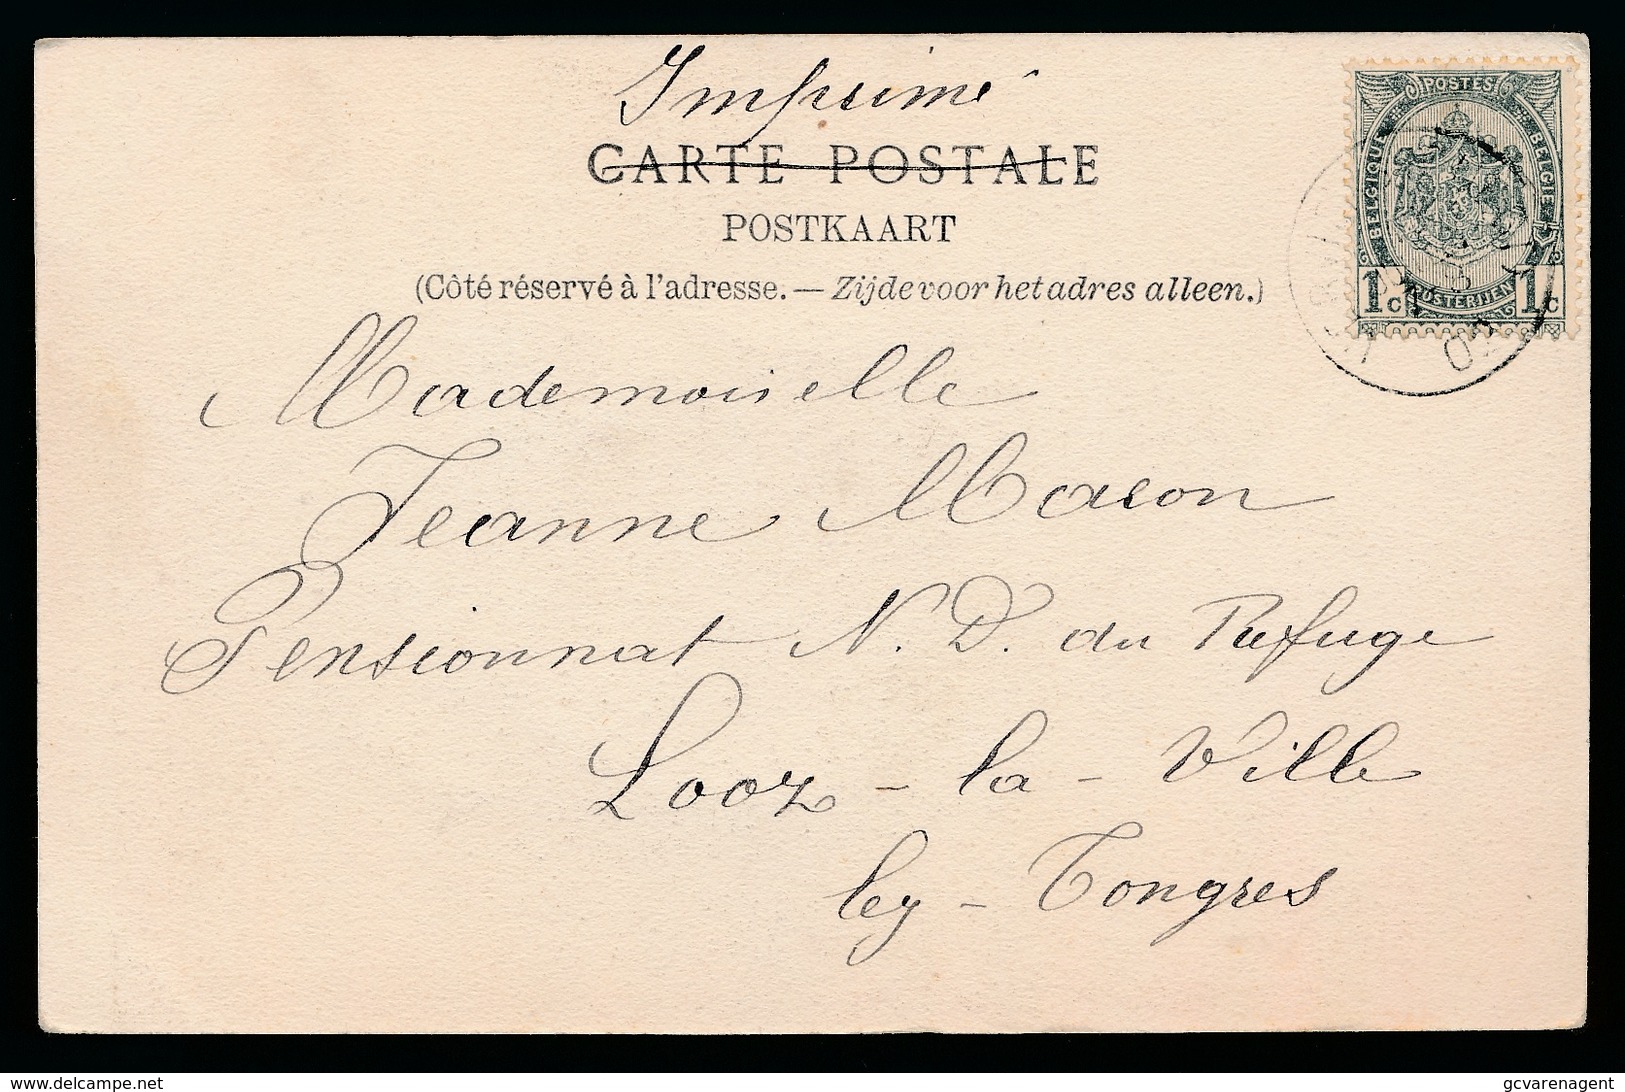 Imprimé
CARTE POSTALE
POSTKAART
(Côté réservé à l'adresse. — Zijde voor het adres alleen.)
POSTES
BELGIQUE BELGIE
1c POSTERIJEN 1c
Mademoiselle
Jeanne Macon
Pensionnat N. D. du Refuge
Looz - la - Ville
lez - Tongres
delcampe.net
gcvarenagent